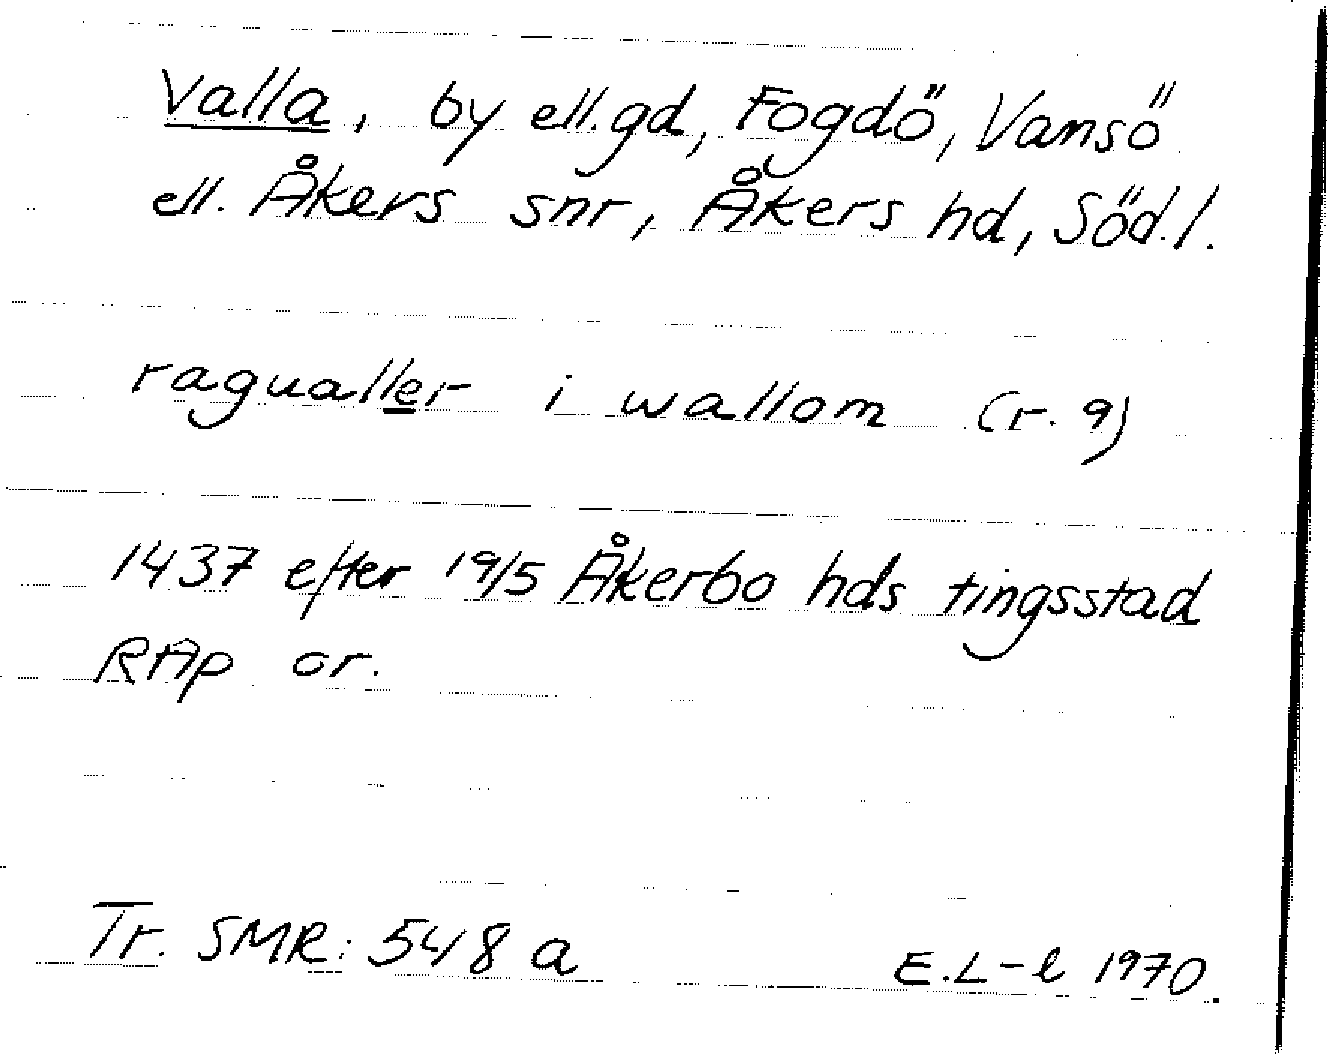 Valla, by ell. gd, Fogdö, Vansö
ell. Åkers snr, Åkers hd, Söd.l.
ragualler i wallom (r. 9)
1437 efter 19/5 Åkerbo hds tingsstad
RAp or.
Tr. SMR: 548 a
E.L-l 1970.